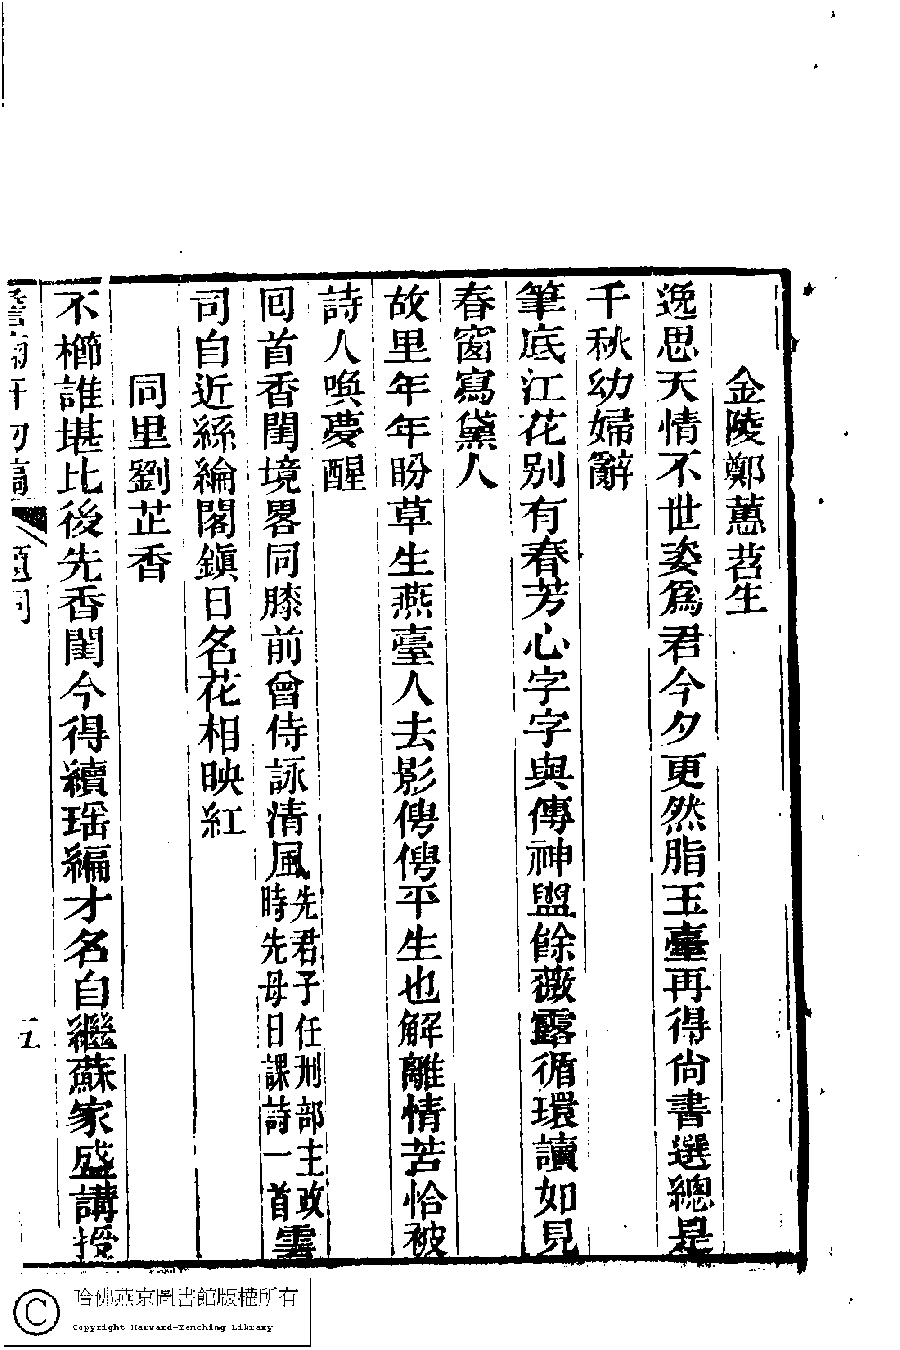 金陵鄭蕙苕生
逸思天情不世姿爲君今夕更然脂玉臺再得尙書選總是
千秋幼婦辭
筆底江花別有春芳心字字與傳神盥餘薇露循環讀如見
春窗寫黛人
故里年年盼草生燕臺人去影俜俜平生也解離情苦恰被
詩人喚夢醒
回首香閨境畧同膝前曾侍詠清風先君子任刑部主政時先母日課詩一首雲
司自近絲綸閣鎭日名花相映紅
同里劉芷香
不櫛誰堪比後先香閨今得續瑤編才名自繼蘇家盛講授
題詞
五
哈佛燕京圖書館版權所有
Copyright Harvard-Yenching Library